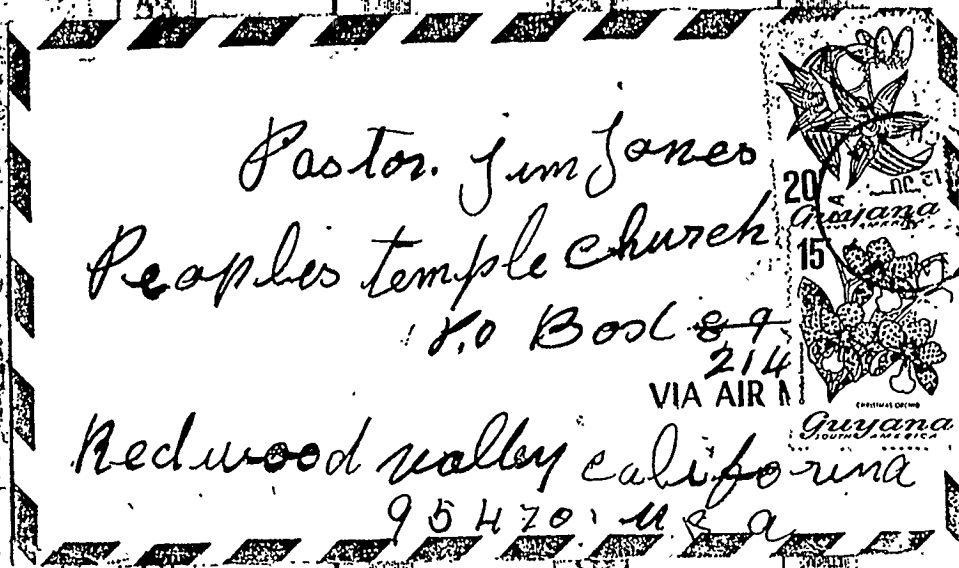 Pastor. Jim Jones
Peoples temple church
P.o Box 89
214
VIA AIR M
Redwood valley california
95470. U S a
20
Guyana
15
CHRISTMAS ORCHID
Guyana
SOUTH AMERICA